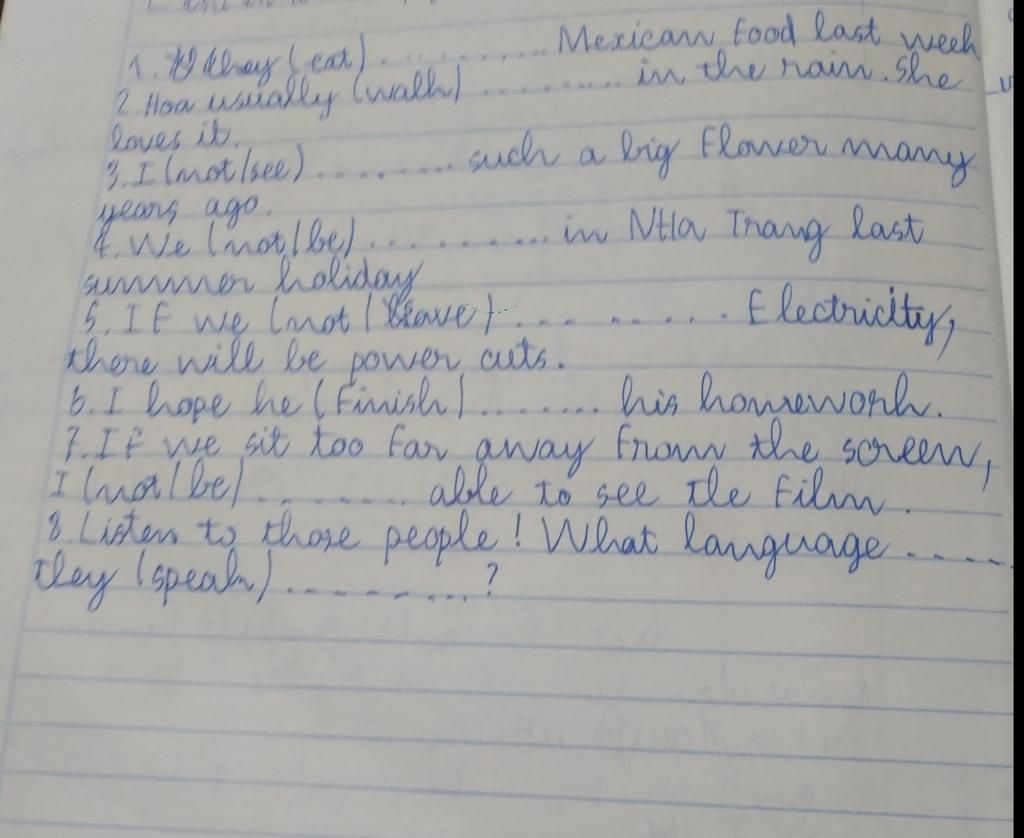 1. they (eat) ............ Mexican Food last week
2. Hoa usually (walk) .......... in the rain. She
loves it.
3. I (not/see) ......... such a big Flower many
years ago.
4. We (not/be) ........... in NHa Trang last
summer holiday
5. IF we (not/save) .......... Electricity,
there will be power cuts.
6. I hope he (Finish) ........ his homework.
7. IF we sit too Far away From the screen,
I (not/be) ......... able to see tle Film.
8. Listen to those people! What language .....
they (speak) ..........?